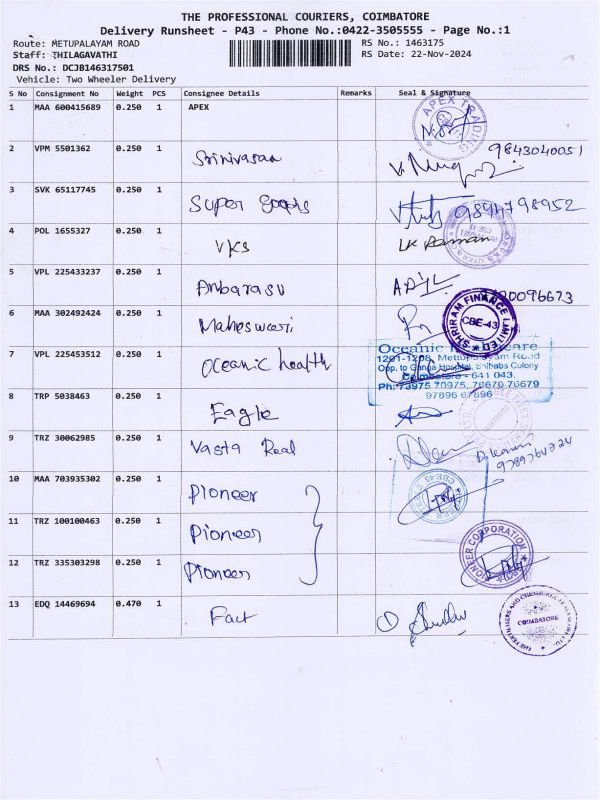 THE PROFESSIONAL COURIERS, COIMBATORE
Delivery Runsheet - P43 - Phone No.:0422-3505555 - Page No.:1
Route: METUPALAYAM ROAD RS No.: 1463175
Staff: THILAGAVATHI RS Date: 22-Nov-2024
DRS No.: DCJB146317501
Vehicle: Two Wheeler Delivery
S No Consignment No Weight PCS Consignee Details Remarks Seal & Signature
1 MAA 600415689 0.250 1 APEX
APEX TRADING
2 VPM 5501362 0.250 1 Srinivasan 9843040051
3 SVK 65117745 0.250 1 Super goods
4 POL 1655327 0.250 1 VKS LK Raman
5 VPL 225433237 0.250 1 Anbarasu
6 MAA 302492424 0.250 1 Maheswari
SHRIRAM FINANCE LIMITED
CBE-43
7 VPL 225453512 0.250 1 Oceanic health
Oceanic
Mettupalayam Road
Opp. to Ganga Hospital, Shibaba Colony
Coimbatore - 641 043.
Ph: 73975 70975, 76670 76679
97896 67896
8 TRP 5038463 0.250 1 Eagle
9 TRZ 30062985 0.250 1 Vasta Real
10 MAA 703935302 0.250 1 Pioneer
11 TRZ 100100463 0.250 1 Pioneer
12 TRZ 335303298 0.250 1 Pioneer
PIONEER CORPORATION
13 EDQ 14469694 0.470 1 Fact
COIMBATORE